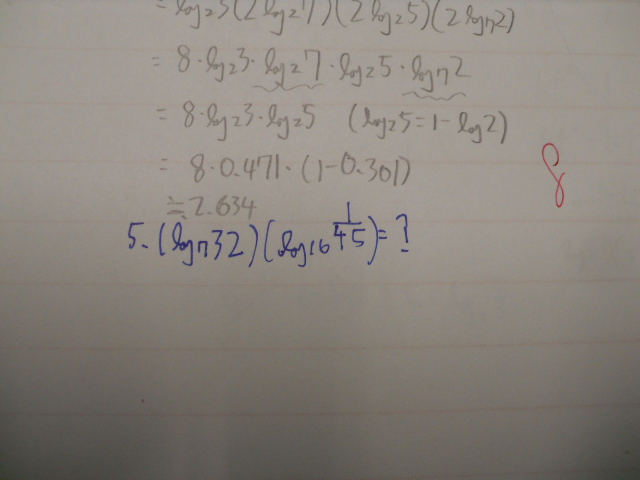 = log₂3(2log₂7)(2log₂5)(2log₇2)
= 8·log₂3·log₂7·log₂5·log₇2
= 8·log₂3·log₂5 (log₂5=1-log2)
= 8·0.471·(1-0.301)
≒2.634
8
5.(log₇32)(log₁₆ 1/45)=?